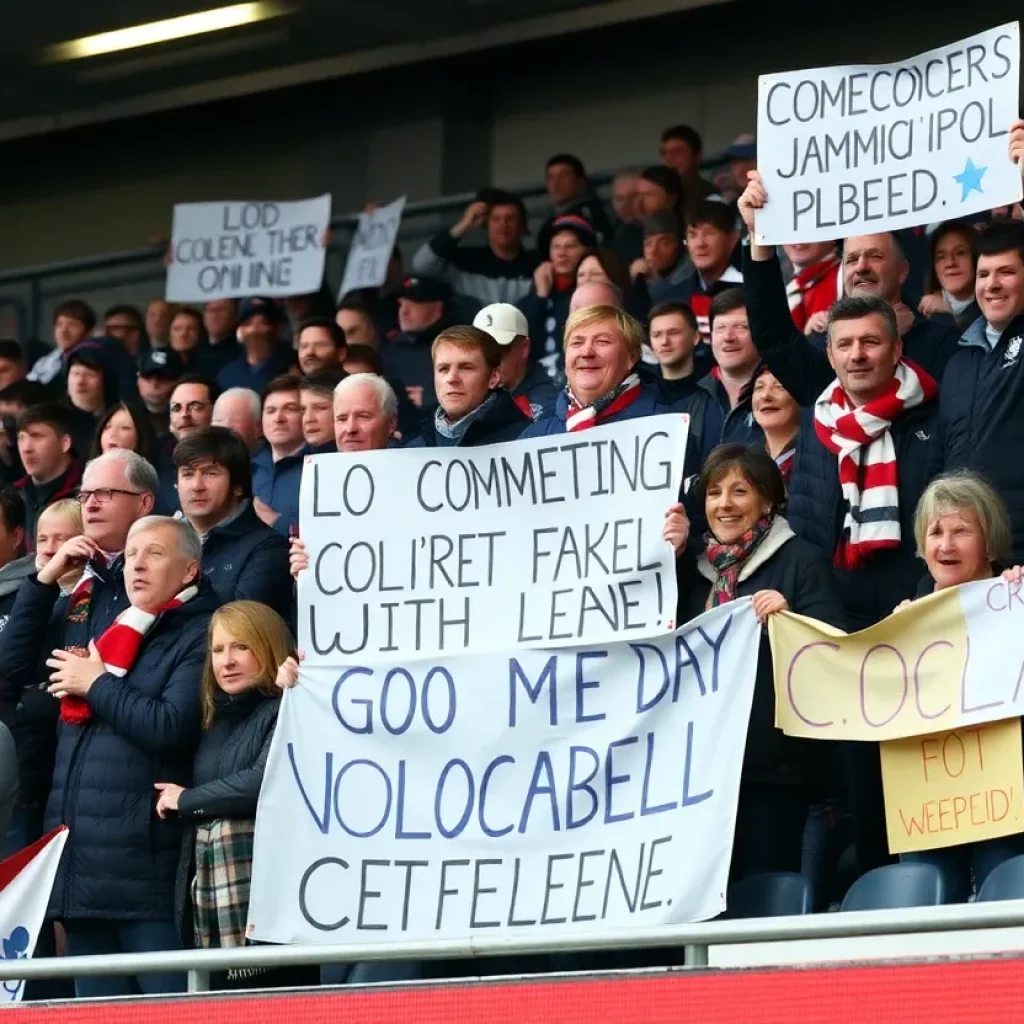 COMECOICERS
JAMMICI'IPOL
PLBEED.
LOD
COLENC THER
ONINNE
LO COMMETING
COLI'RET FAKEL
WITH LEANE!
GOO ME DAY
VOLOCABELL
CETFELEENE.
C.OCLA
CR
FOT
WEEPEID!